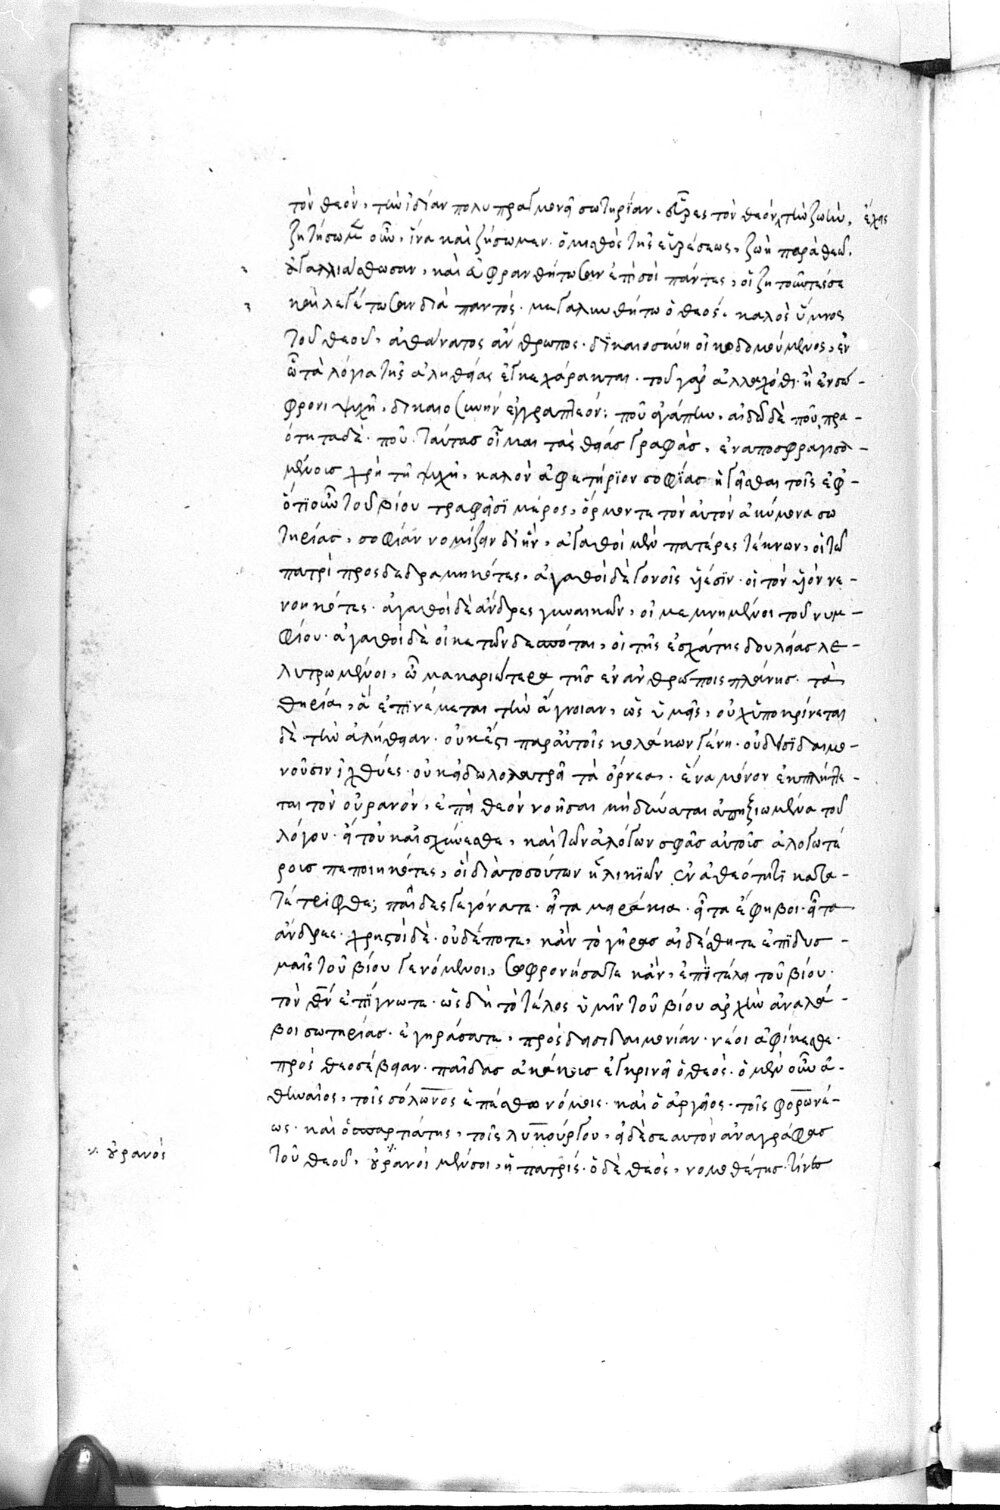 τὸν θεὸν, τὴν ἰδίαν πολυπραγμονεῖ σωτηρίαν. εὗρες τὸν θεὸν, τὴν ζωὴν, ἔχεις
ζητήσωμεν οὖν, ἵνα καὶ ζήσωμεν. ὁ μισθὸς τῆς εὑρέσεως, ζωὴ παρὰ θεῷ.
ἀγαλλιάσθωσαν, καὶ εὐφρανθήτωσαν ἐπὶ σοὶ πάντες, οἱ ζητοῦντές σε
καὶ λεγέτωσαν διὰ παντὸς. μεγαλυνθήτω ὁ θεός. καλὸς ὕμνος
τοῦ θεοῦ, ἀθάνατος ἄνθρωπος. δικαιοσύνη οἰκοδομούμενος, ἐν
ᾧ τὰ λόγια τῆς ἀληθείας ἐγκεχάρακται. ποῦ γὰρ ἀλλαχόθι. ἢ ἐν σώ-
φρονι ψυχῆ, δικαιοσύνην ἐγγραπτέον; ποῦ ἀγάπην. αἰδῶ δὲ ποῦ. πρα-
ότητα δὲ. ποῦ. ταύτας οἶμαι τὰς θείας γραφὰς, ἐναποσφραγισα-
μένους χρὴ τῇ ψυχῇ, καλὸν ἀφετήριον σοφίας ἡγεῖσθαι τοῖς ἐφ'
ὁτιοῦν τοῦ βίου τραπεῖσι μέρος, ὅρμον τε τὸν αὐτὸν ἀκύμονα σω
τηρίας, σοφίαν νομίζειν δι' ἣν, ἀγαθοὶ μὲν πατέρες τέκνων, οἱ τῷ
πατρὶ προσδεδραμηκότες, ἀγαθοὶ δὲ γονεῖς υἱέσιν. οἱ τὸν υἱὸν νε-
νοηκότες. ἀγαθοὶ δὲ ἄνδρες γυναικῶν, οἱ μεμνημένοι τοῦ νυμ-
φίου. ἀγαθοὶ δὲ οἰκετῶν δεσπόται, οἱ τῆς ἐσχάτης δουλείας λε-
λυτρωμένοι, ὢ μακαριώτερα τῆς ἐν ἀνθρώποις πλάνης. τὰ
θηρία, ἃ ἐπινέμεται τὴν ἄγνοιαν, ὡς ὑμεῖς, οὐχ ὑποκρίνεται
δὲ τὴν ἀλήθειαν. οὐκ ἔστι παρ' αὐτοῖς κολάκων γένη. οὐ δεισιδαιμο-
νοῦσιν ἰχθύες. οὐκ εἰδωλολατρεῖ τὰ ὄρνεα. ἕνα μόνον ἐκπλήττε-
ται τὸν οὐρανὸν, ἐπεὶ θεὸν νοῆσαι μὴ δύναται ἀπηξιωμένα τοῦ
λόγου. εἶτ' οὐκ αἰσχύνεσθε, καὶ τῶν ἀλόγων σφᾶς αὐτοὺς ἀλογωτέ
ρους πεποιηκότες, οἳ διὰ τοσούτων ἡλικιῶν ἐν ἀθεότητι κατα-
τέτριφθε; παῖδες γεγόνατε. εἶτα μειράκια. εἶτα ἔφηβοι. εἶτα
ἄνδρες. χρηστοὶ δὲ. οὐδέποτε, κἂν τὸ γῆρας αἰδέσθητε ἐπὶ δυσ-
μαῖς τοῦ βίου γενόμενοι, σωφρονήσατε κἂν, ἐπὶ τέλει τοῦ βίου.
τὸν θν ἐπίγνωτε. ὡς δὴ τὸ τέλος ὑμῖν τοῦ βίου ἀρχὴν ἀναλά-
βοι σωτηρίας. ἐγηράσατε, πρὸς δεισιδαιμονίαν. νέοι ἀφίκεσθε.
πρὸς θεοσέβειαν. παῖδας ἀκάκους ἐγκρινεῖ ὁ θεός. ὁ μὲν οὖν ἀ-
θηναῖος, τοῖς σόλωνος ἑπέσθω νόμοις. καὶ ὁ ἀργεῖος. τοῖς φορωνέ-
ως. καὶ ὁ σπαρτιάτης, τοῖς λυκούργου, εἰ δὲ σεαυτὸν ἀναγράφεις
τοῦ θεοῦ, οὐρανὸς μέν σοι, ἡ πατρὶς. ὁ δὲ θεὸς, νομοθέτης. τίνες
οὐρανός